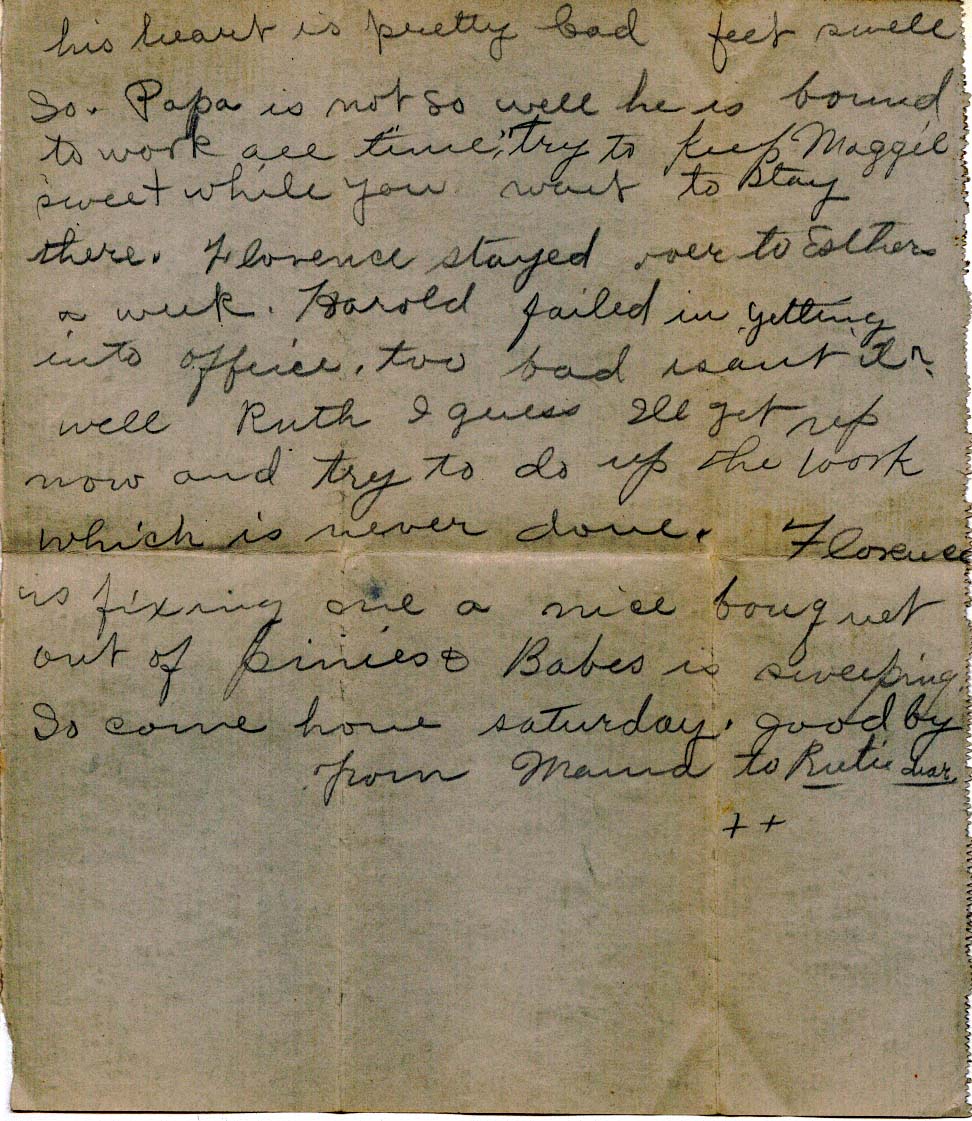 his heart is pretty bad feet swell
So. Papa is not so well he is bound
to work all time, try to keep Maggie
sweet while you want to stay
there. Florence stayed over to Esthers
a week. Harold failed in getting
into office, too bad isant it?
well Ruth I guess Ill get up
now and try to do up the work
which is never done. Florence
is fixing me a nice bouquet
out of pinies & Babes is sweeping
So come home saturday. good by
from Mama to Rutie dear
++